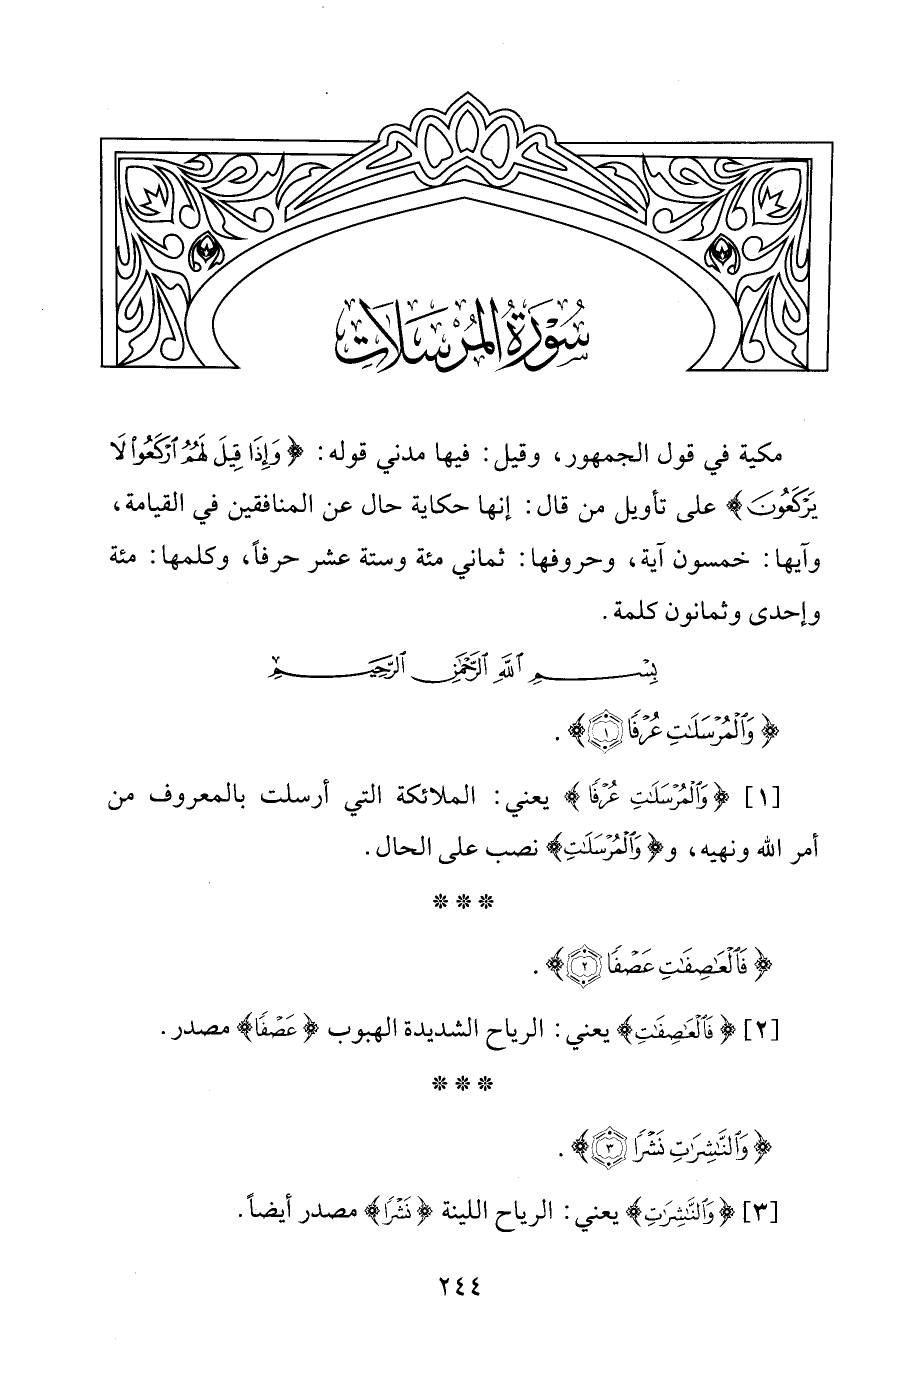 سُورَةُ المُرْسَلَاتِ
مكية في قول الجمهور، وقيل: فيها مدني قوله: ﴿وَإِذَا قِيلَ لَهُمُ ٱرْكَعُوا۟ لَا
يَرْكَعُونَ﴾ على تأويل من قال: إنها حكاية حال عن المنافقين في القيامة،
وآيها: خمسون آية، وحروفها: ثماني مئة وستة عشر حرفاً، وكلمها: مئة
وإحدى وثمانون كلمة.
بِسْمِ ٱللَّهِ ٱلرَّحْمَٰنِ ٱلرَّحِيمِ
﴿وَٱلْمُرْسَلَٰتِ عُرْفًا ١﴾.
[١] ﴿وَٱلْمُرْسَلَٰتِ عُرْفًا﴾ يعني: الملائكة التي أرسلت بالمعروف من
أمر الله ونهيه، و﴿وَٱلْمُرْسَلَٰتِ﴾ نصب على الحال.
* * *
﴿فَٱلْعَٰصِفَٰتِ عَصْفًا ٢﴾.
[٢] ﴿فَٱلْعَٰصِفَٰتِ﴾ يعني: الرياح الشديدة الهبوب ﴿عَصْفًا﴾ مصدر.
* * *
﴿وَٱلنَّٰشِرَٰتِ نَشْرًا ٣﴾.
[٣] ﴿وَٱلنَّٰشِرَٰتِ﴾ يعني: الرياح اللينة ﴿نَشْرًا﴾ مصدر أيضاً.
٢٤٤